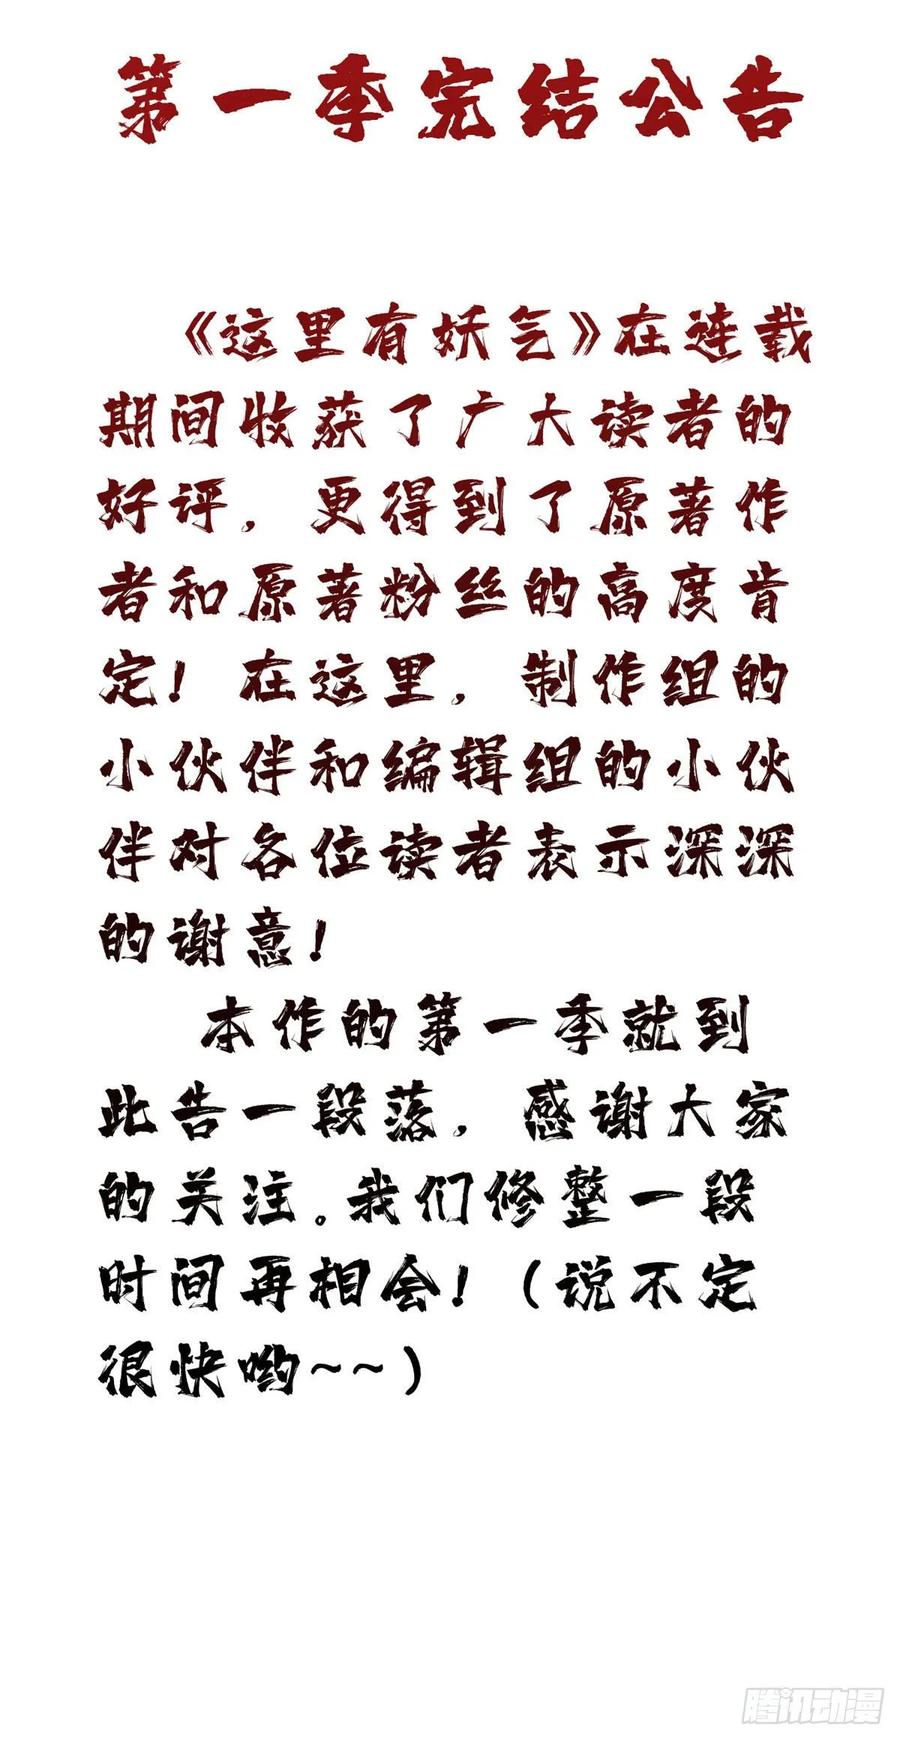 第一季完结公告
《这里有妖气》在连载
期间收获了广大读者的
好评，更得到了原著作
者和原著粉丝的高度肯
定！在这里，制作组的
小伙伴和编辑组的小伙
伴对各位读者表示深深
的谢意！
本作的第一季就到
此告一段落，感谢大家
的关注。我们修整一段
时间再相会！（说不定
很快哟~~）
腾讯动漫